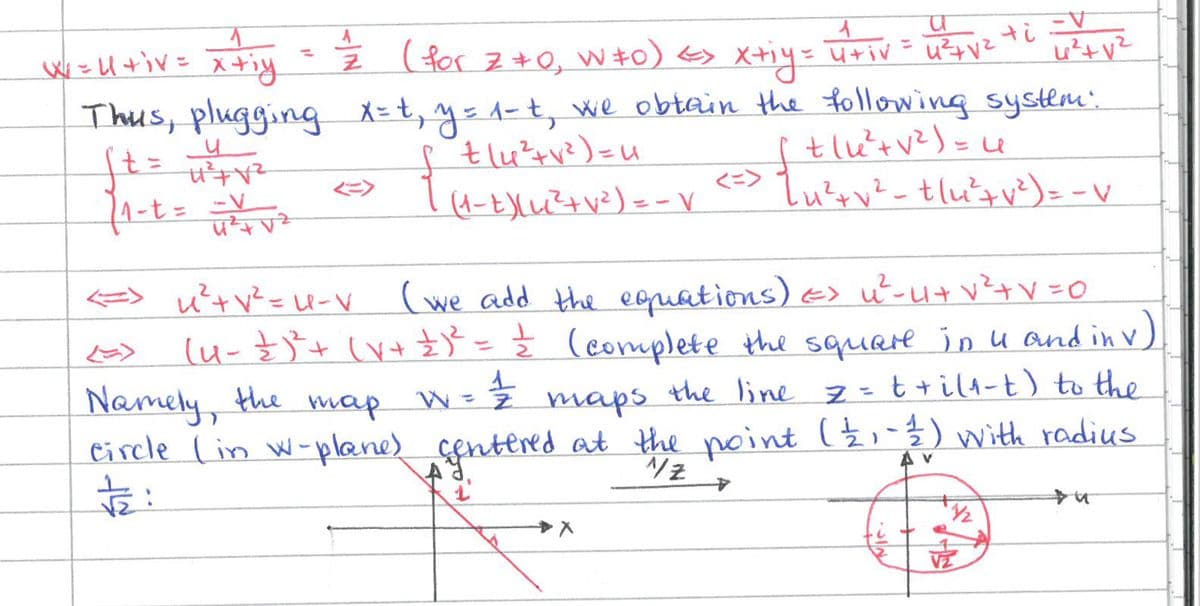 w = u+iv = 1/(x+iy) = 1/z (for z≠0, w≠0) <=> x+iy = 1/(u+iv) = u/(u²+v²) + i -v/(u²+v²)
Thus, plugging x=t, y=1-t, we obtain the following system:
{ t = u/(u²+v²) <=> { t(u²+v²)=u <=> { t(u²+v²)=u
{ 1-t = -v/(u²+v²) { (1-t)(u²+v²)=-v { u²+v²-t(u²+v²)=-v
<=> u²+v²=u-v (we add the equations) <=> u²-u+v²+v=0
<=> (u-1/2)²+(v+1/2)²=1/2 (complete the square in u and in v)
Namely, the map w=1/z maps the line z=t+i(1-t) to the
circle (in w-plane) centered at the point (1/2,-1/2) with radius
1/√2:
y
1
x
1/z
v
u
1/2
-i/2
1/√2